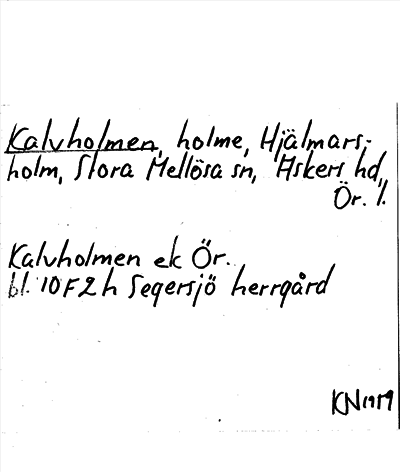 Kalvholmen, holme, Hjälmars-
holm, Stora Mellösa sn, Askers hd,
Ör. l.
Kalvholmen ek Ör.
bl. 10F2h Segersjö herrgård
KN1979